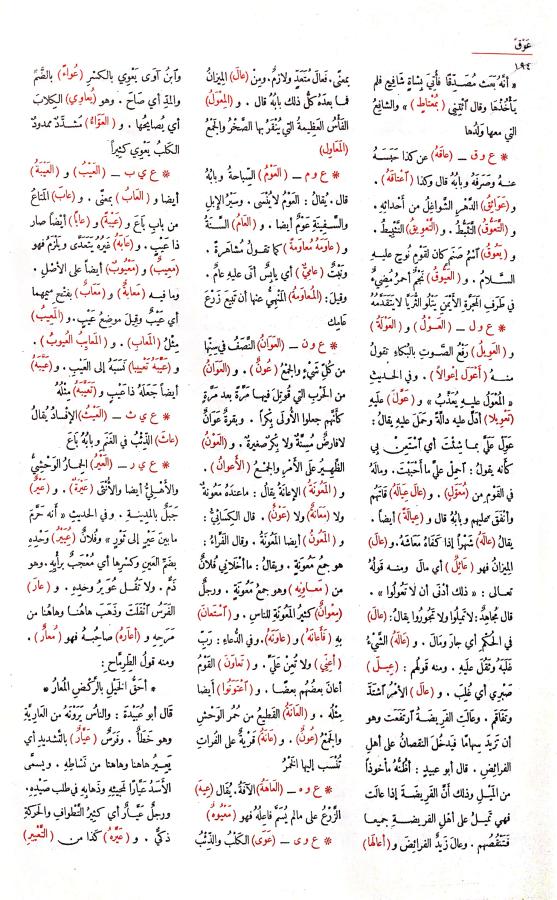 عَوَقَ
١٩٤
« أنَّهُ بَعَثَ مُصَدِّقًا فأُتِيَ بِشاةٍ شَافِعٍ فلم
يَأْخُذْها وقال ٱئْتِنِي (بمُعْتَاطٍ) » والشافِعُ
التي معها وَلَدُها
* ع و ق – (عاقَهُ) عن كذا حَبَسَهُ
عنه وصَرَفَهُ وبابُهُ قال وكذا (اعْتاقَهُ) .
و (عَوَائِقُ) الدَّهْرِ الشَّواغِلُ من أَحْداثِهِ .
و (التَّعَوُّقُ) التَّثَبُّطُ . و (التَّعْوِيقُ) التَّثْبِيطُ .
و (يَعُوقُ) اسْمُ صَنَمٍ كان لقَوْمِ نُوحٍ عليه
السلامُ . و (العَيُّوقُ) نَجْمٌ أحمرُ مُضِيءٌ
في طَرَفِ المَجَرَّةِ الأَيْمَنِ يَتْلُو الثُّرَيَّا لا يَتَقَدَّمُهُ
* ع و ل – (العَوْلُ) و (العَوْلَةُ)
و (العَوِيلُ) رَفْعُ الصَّوتِ بالبُكاءِ تقولُ
منه (أَعْوَلَ إِعْوالًا) . وفي الحديثِ
« المُعْوَلُ عليه يُعَذَّبُ » و (عَوَّلَ) عليه
(تَعْوِيلا) أَدَلَّ عليه دَالَّةً وحَمَلَ عليه يقالُ :
عَوِّلْ عَلَيَّ بما شِئْتَ أي ٱسْتَعِنْ بي
كأنه يقولُ : ٱحمِلْ عليَّ ما أَحْبَبْتَ . ومالَهُ
في القومِ من (مُعَوَّلٍ) . و (عالَ عِيالَهُ) قاتَهُم
وأنفَقَ عليهم وبابُهُ قال و (عِيالَةً) أيضاً .
يقالُ (عالَهُ) شَهْرًا إذا كَفَاهُ مَعَاشَهُ. و(عالَ)
المِيزانُ فهو (عائِلٌ) أي مالَ ومنه قولُهُ
تعالى : « ذلك أَدْنَى أن لا تَعُولُوا » .
قال مُجاهِدٌ: لا تَمِيلُوا ولا تَجُورُوا يقالُ: (عالَ)
في الحُكْمِ أي جارَ ومَالَ . و (عالَهُ) الشَّيْءُ
غَلَبَهُ وثَقُلَ عليه . ومنه قولُهم : (عِيلَ)
صَبْرِي أي غُلِبَ . و (عالَ) الأَمْرُ ٱشْتَدَّ
وتَفَاقَمَ . وعالَتِ الفَرِيضَةُ ٱرتَفَعَت وهو
أن تَزِيدَ سِهامًا فيَدخُلَ النُّقصانُ على أهلِ
الفرائضِ . قال أبو عبيدٍ : أظُنُّهُ مأخُوذًا
من المَيْلِ وذلك أنَّ الفَرِيضَةَ إذا عالت
فهي تَمِيلُ على أهلِ الفريضةِ جميعا
فتَنْقُصُهم . وعالَ زيدٌ الفرائضَ و (أعالَها)
بمعنًى. فعالَ مُتَعَدٍّ ولازِمٌ. ومِن (عالَ) المِيزانُ
فما بعدَهُ كُلُّ ذلك بابُهُ قال . و (المِعْوَلُ)
الفَأْسُ العظِيمةُ التي يُنْقَرُ بها الصَّخْرُ والجَمْعُ
(المَعاوِل)
* ع و م – (العَوْمُ) السِّباحَةُ وبابُهُ
قال . يُقالُ : العَوْمُ لا يُنْسَى . وسَيْرُ الإِبِلِ
والسَّفِينَةِ عَوْمٌ أيضا . و (العامُ) السَّنَةُ
و (عاوَمَهُ مُعاوَمَةً) كما تقولُ مُشاهَرَةً .
ونَبْتٌ (عامِيٌّ) أي يابِسٌ أتى عليه عامٌ .
وقيلَ: (المُعاوَمَةُ) المَنْهِيُّ عنها أن تَبِيعَ زَرْعَ
عامِك
* ع و ن – (العَوَانُ) النَّصَفُ في سِنِّها
من كُلِّ شَيْءٍ والجَمْعُ (عُونٌ) . و (العَوَانُ)
من الحَرْبِ التي قُوتِلَ فيها مرَّةً بعدَ مرَّةٍ
كأنَّهم جعلوا الأُولَى بِكْراً . وبقرةٌ عَوَانٌ
لا فارِضٌ مُسِنَّةٌ ولا بِكْرٌ صغيرةٌ . و (العَوْنُ)
الظَّهِيرُ عَلَى الأَمْرِ والجَمْعُ (الأَعوانُ) .
و (المَعُونَةُ) الإعانَةُ يقالُ : ماعندَهُ مَعُونَةٌ
ولا (مَعَانَةٌ) ولا (عَوْنٌ) . قال الكِسَائيُّ :
و (المَعُونُ) أيضا المَعُونَةُ . وقال الفَرَّاءُ :
هو جمعُ مَعُونَةٍ . ويقالُ : ما أَخْلاني فُلانٌ
من (مَعاوِنِهِ) وهو جمعُ مَعُونَةٍ . ورجلٌ
(مِعْوانٌ) كثيرُ المَعُونَةِ للناسِ . و (ٱسْتَعَانَ)
بِهِ (فأعانَهُ) و (عاوَنَهُ). وفي الدُّعاءِ : رَبِّ
(أَعِنِّي) ولا تُعِنْ عَلَيَّ . و (تَعاوَنَ) القَوْمُ
أعانَ بعضُهُم بعضًا . و (ٱعْتَوَنُوا) أيضا
مِثْلُه . و (العانَةُ) القَطِيعُ من حُمُرِ الوَحْشِ
والجمعُ (عُونٌ) . و (عانَةُ) قَرْيَةٌ على الفُراتِ
تُنْسَبُ إليها الخَمْرُ
* ع و ه – (العاهَةُ) الآفَةُ. يُقالُ (عِيهَ)
الزَّرْعُ على مالم يُسَمَّ فاعِلُهُ فهو (مَعْيُوهٌ)
* ع و ى – (عَوَى) الكَلْبُ والذِّئْبُ
وٱبنُ آوَى يَعْوِي بالكسْرِ (عُوَاءً) بالضَّمِّ
والمَدِّ أي صَاحَ . وهو (يُعاوِي) الكِلابَ
أي يُصايِحُها . و (العَوَّاءُ) مُشَدَّدٌ ممدودٌ
الكَلْبُ يَعْوِي كثيراً
* ع ي ب – (العَيْبُ) و (العَيْبَةُ)
أيضا و (العَابُ) بمعنًى . و (عابَ) المَتَاعُ
من بابِ بَاعَ و (عَيْبَةً) و (عابًا) أيْضًا صار
ذا عَيْبٍ . و (عابَهُ) غَيْرُهُ يَتَعَدَّى ويَلْزَمُ فهو
(مَعِيبٌ) و (مَعْيُوبٌ) أيضاً على الأَصْلِ .
وما فيه (مَعَابَةٌ) و (مَعَابٌ) بفتحِ مِيمِهِما
أي عَيْبٌ وقيلَ مَوضِعُ عَيْبٍ. و(المَعِيبُ)
مِثْلُ (المَعَابِ) . و (المَعايِبُ العُيوبُ) .
و (عَيَّبَهُ تَعْيِيبا) نَسَبَهُ إلى العَيْبِ. و (عَيَّبَهُ)
أيضاً جَعَلَهُ ذا عَيْبٍ و (تَعَيَّبَهُ) مِثْلُهُ
* ع ي ث – (العَيْثُ) الإفْسادُ يُقالُ
(عاثَ) الذِّئْبُ في الغَنَمِ وبابُهُ باعَ
* ع ي ر – (العَيْرُ) الحِمارُ الوَحْشِيُّ
والأَهْلِيُّ أيضا والأُنْثَى (عَيْرَةٌ) . و (عَيْرٌ)
جَبَلٌ بالمدينةِ . وفي الحديثِ « أنه حَرَّمَ
ما بين عَيْرٍ إلى ثَوْرٍ » وفُلانٌ (عُيَيْرُ) وَحْدِهِ
بضَمِّ العَيْنِ وكسْرِها أي مُعْجَبٌ برأيه. وهو
ذَمٌّ . ولا تَقُل عُوَيْرُ وحْدِهِ . و (عارَ)
الفَرَسُ ٱنْفَلَتَ وذَهَبَ هاهُنا وهاهُنا من
مَرَحِهِ و (أعارَهُ) صاحِبُهُ فهو (مُعارٌ) .
ومنه قولُ الطِّرِمَّاحِ :
* أحَقُّ الخَيْلِ بالرَّكْضِ المُعارُ *
قال أبو عُبَيْدَة : والناسُ يَرَوْنَهُ من العارِيَّةِ
وهو خَطَأٌ . وفَرَسٌ (عَيَّارٌ) بالتَّشديدِ أي
يَعِيرُ هاهنا وهاهنا من نَشاطِهِ . ويسمَّى
الأَسَدُ عَيَّارًا لمَجِيئِهِ وذَهابِهِ في طلبِ صَيْدِهِ.
ورجلٌ عَيَّارٌ أي كثيرُ التَّطْوافِ والحَرَكَةِ
ذَكيٌّ . و (عَيَّرَهُ) كذا من (التَّعْيِيرِ)